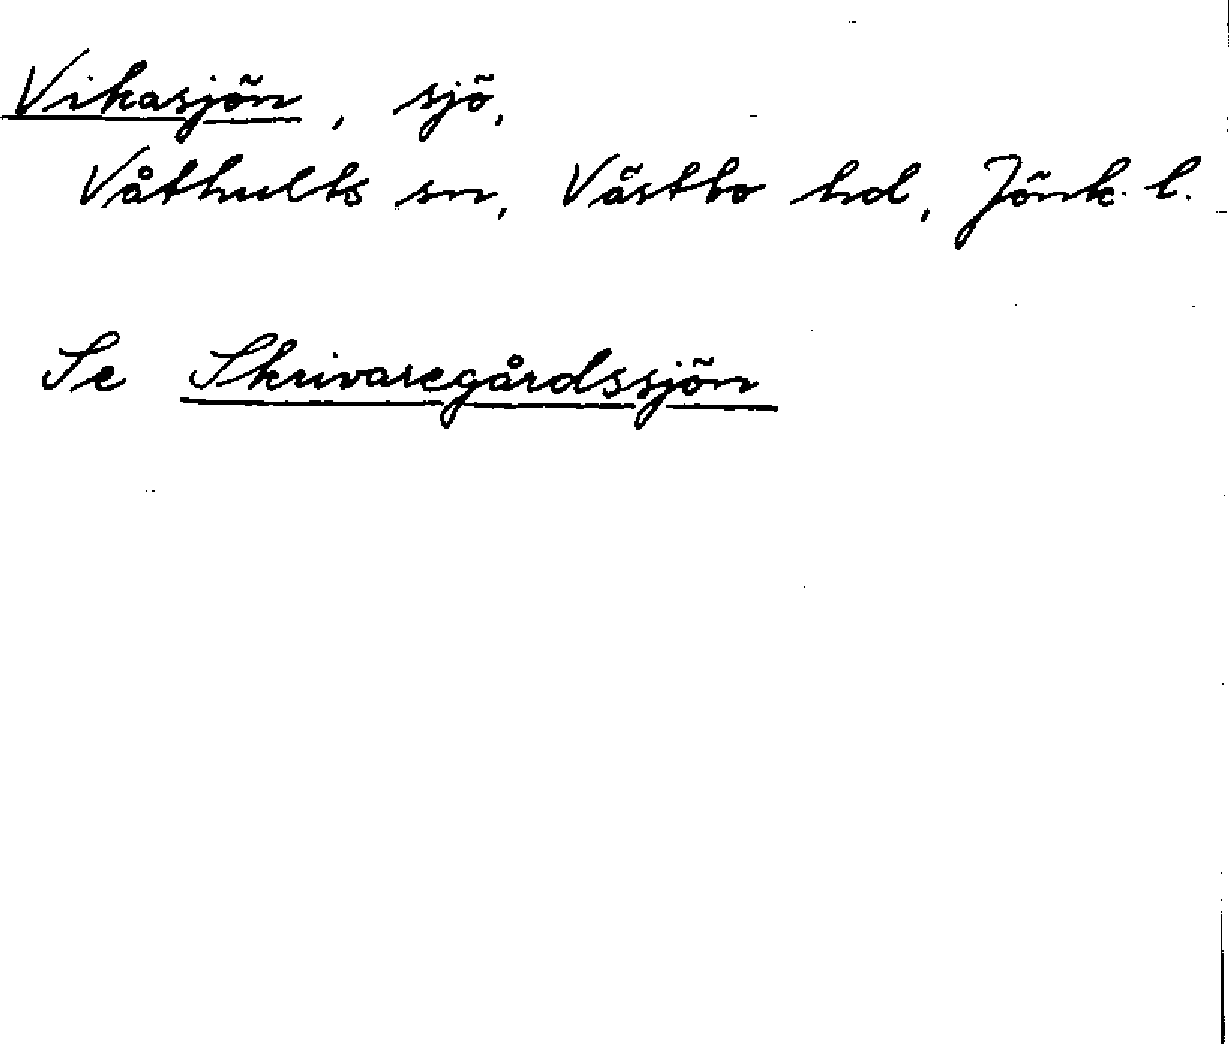 Vikasjön, sjö,
Våthults sn, Västbo hd, Jönk. l.
Se Skrivaregårdssjön